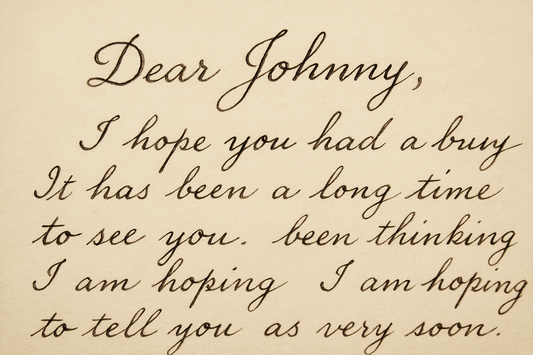 Dear Johnny,
I hope you had a buuy
It has been a long time
to see you. been thinking
I am hoping I am hoping
to tell you as very soon.